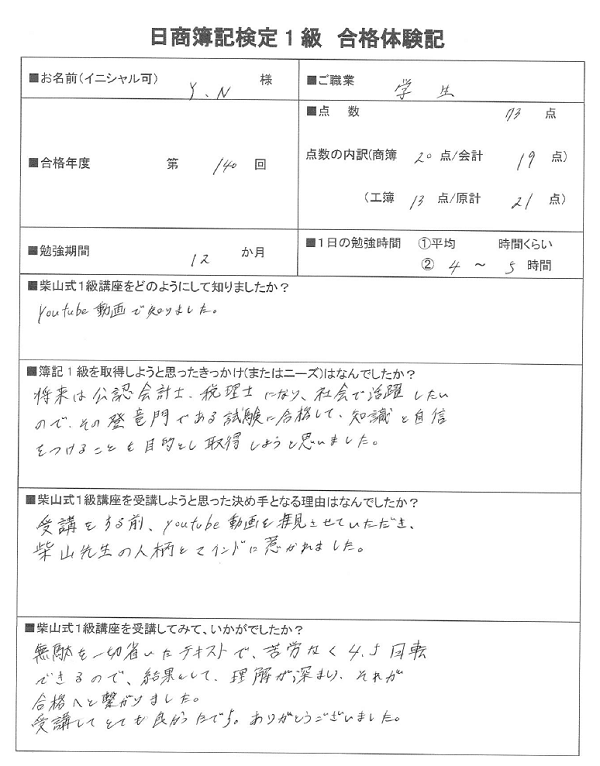 日商簿記検定1級 合格体験記
■お名前(イニシャル可) Y.N 様
■ご職業 学生
■合格年度 第 140 回
■点数 73 点
点数の内訳(商簿 20 点/会計 19 点)
(工簿 13 点/原計 21 点)
■勉強期間 12 か月
■1日の勉強時間 ①平均 時間くらい
② 4 ~ 5 時間
■柴山式1級講座をどのようにして知りましたか?
youtube動画で知りました。
■簿記1級を取得しようと思ったきっかけ(またはニーズ)はなんでしたか?
将来は公認会計士、税理士になり、社会で活躍したい
ので、その登竜門である試験に合格して、知識と自信
をつけることを目的とし取得しようと思いました。
■柴山式1級講座を受講しようと思った決め手となる理由はなんでしたか?
受講をする前、youtube動画を拝見させていただき、
柴山先生の人柄とマインドに惹かれました。
■柴山式1級講座を受講してみて、いかがでしたか?
無駄を一切省いたテキストで、苦労なく4,5回転
できるので、結果として、理解が深まり、それが
合格へと繋がりました。
受講してとても良かったです。ありがとうございました。